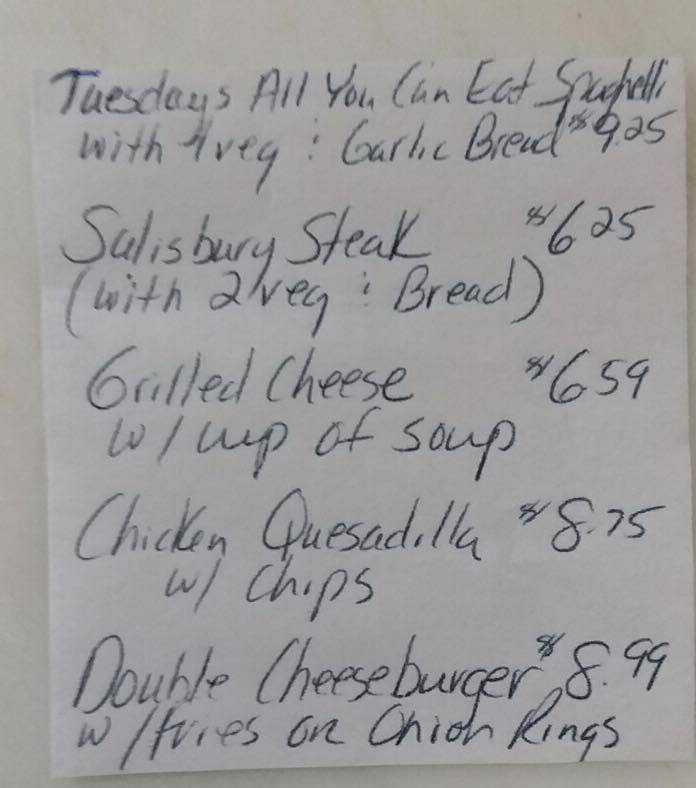 Tuesdays All You Can Eat Spaghetti
with 1 veg & Garlic Bread $9.25
Salisbury Steak $6.25
(with 2 veg & Bread)
Grilled Cheese $6.59
w/ cup of soup
Chicken Quesadilla $8.75
w/ chips
Double Cheeseburger $8.99
w/fries or Onion Rings